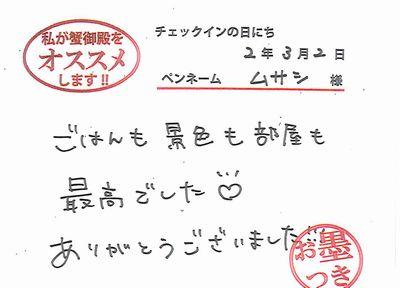 私が蟹御殿を
オススメ
します!!
チェックインの日にち
2年3月2日
ペンネーム ムサシ 様
ごはんも景色も部屋も
最高でした♡
ありがとうございました
お墨
つき